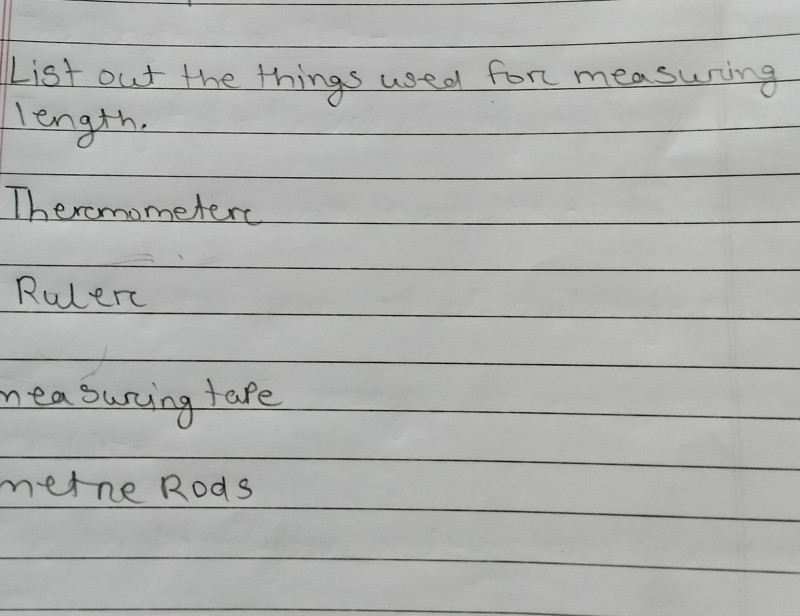 List out the things used for measuring
length.
Thermometer
Ruler
measuring tape
metre Rods